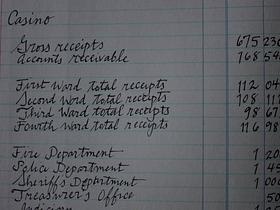 Casino
Gross receipts 675 236
Accounts receivable 168 54
First Ward total receipts 112 04
Second Ward total receipts 108 11
Third Ward total receipts 98 67
Fourth Ward total receipts 116 98
Fire Department 1 20
Police Department 1 45
Sheriff's Department 1 00
Treasurer's Office 50